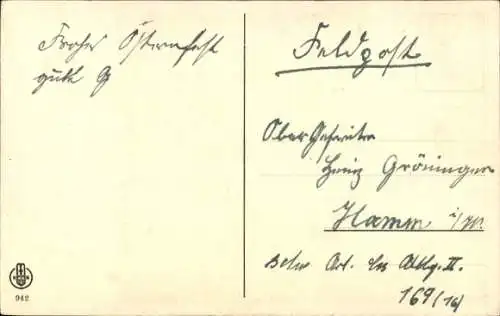 Frohes Osternfest
gute
Feldpost
Ober Gefreiter
Heinz Gröningen
Hamm i/W.
Art. Ers. Abtlg. II.
169 (16)
942